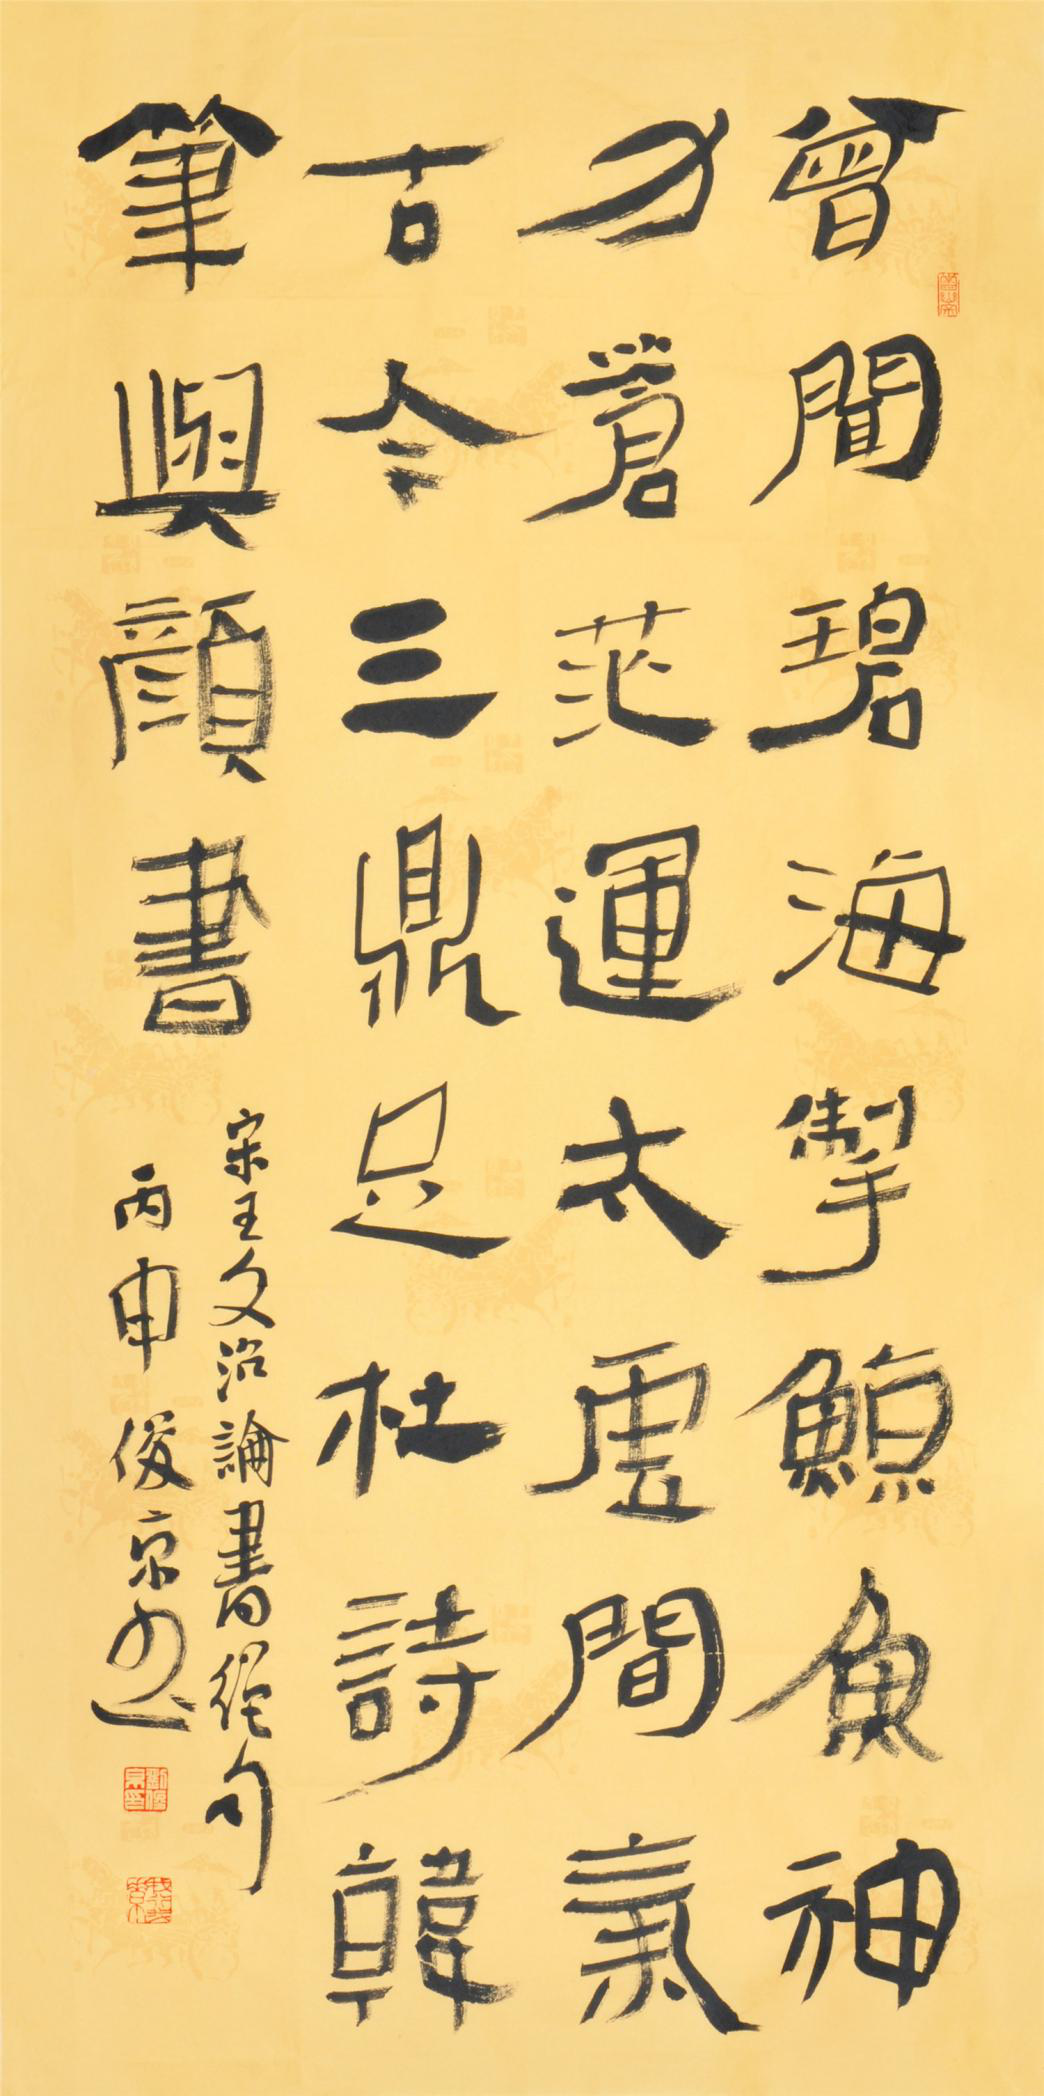 曾聞碧海掣鯨魚神
力蒼茫運太虛間氣
古今三鼎足杜詩韓
筆與顏書
宋王文治論書絕句
丙申俊京